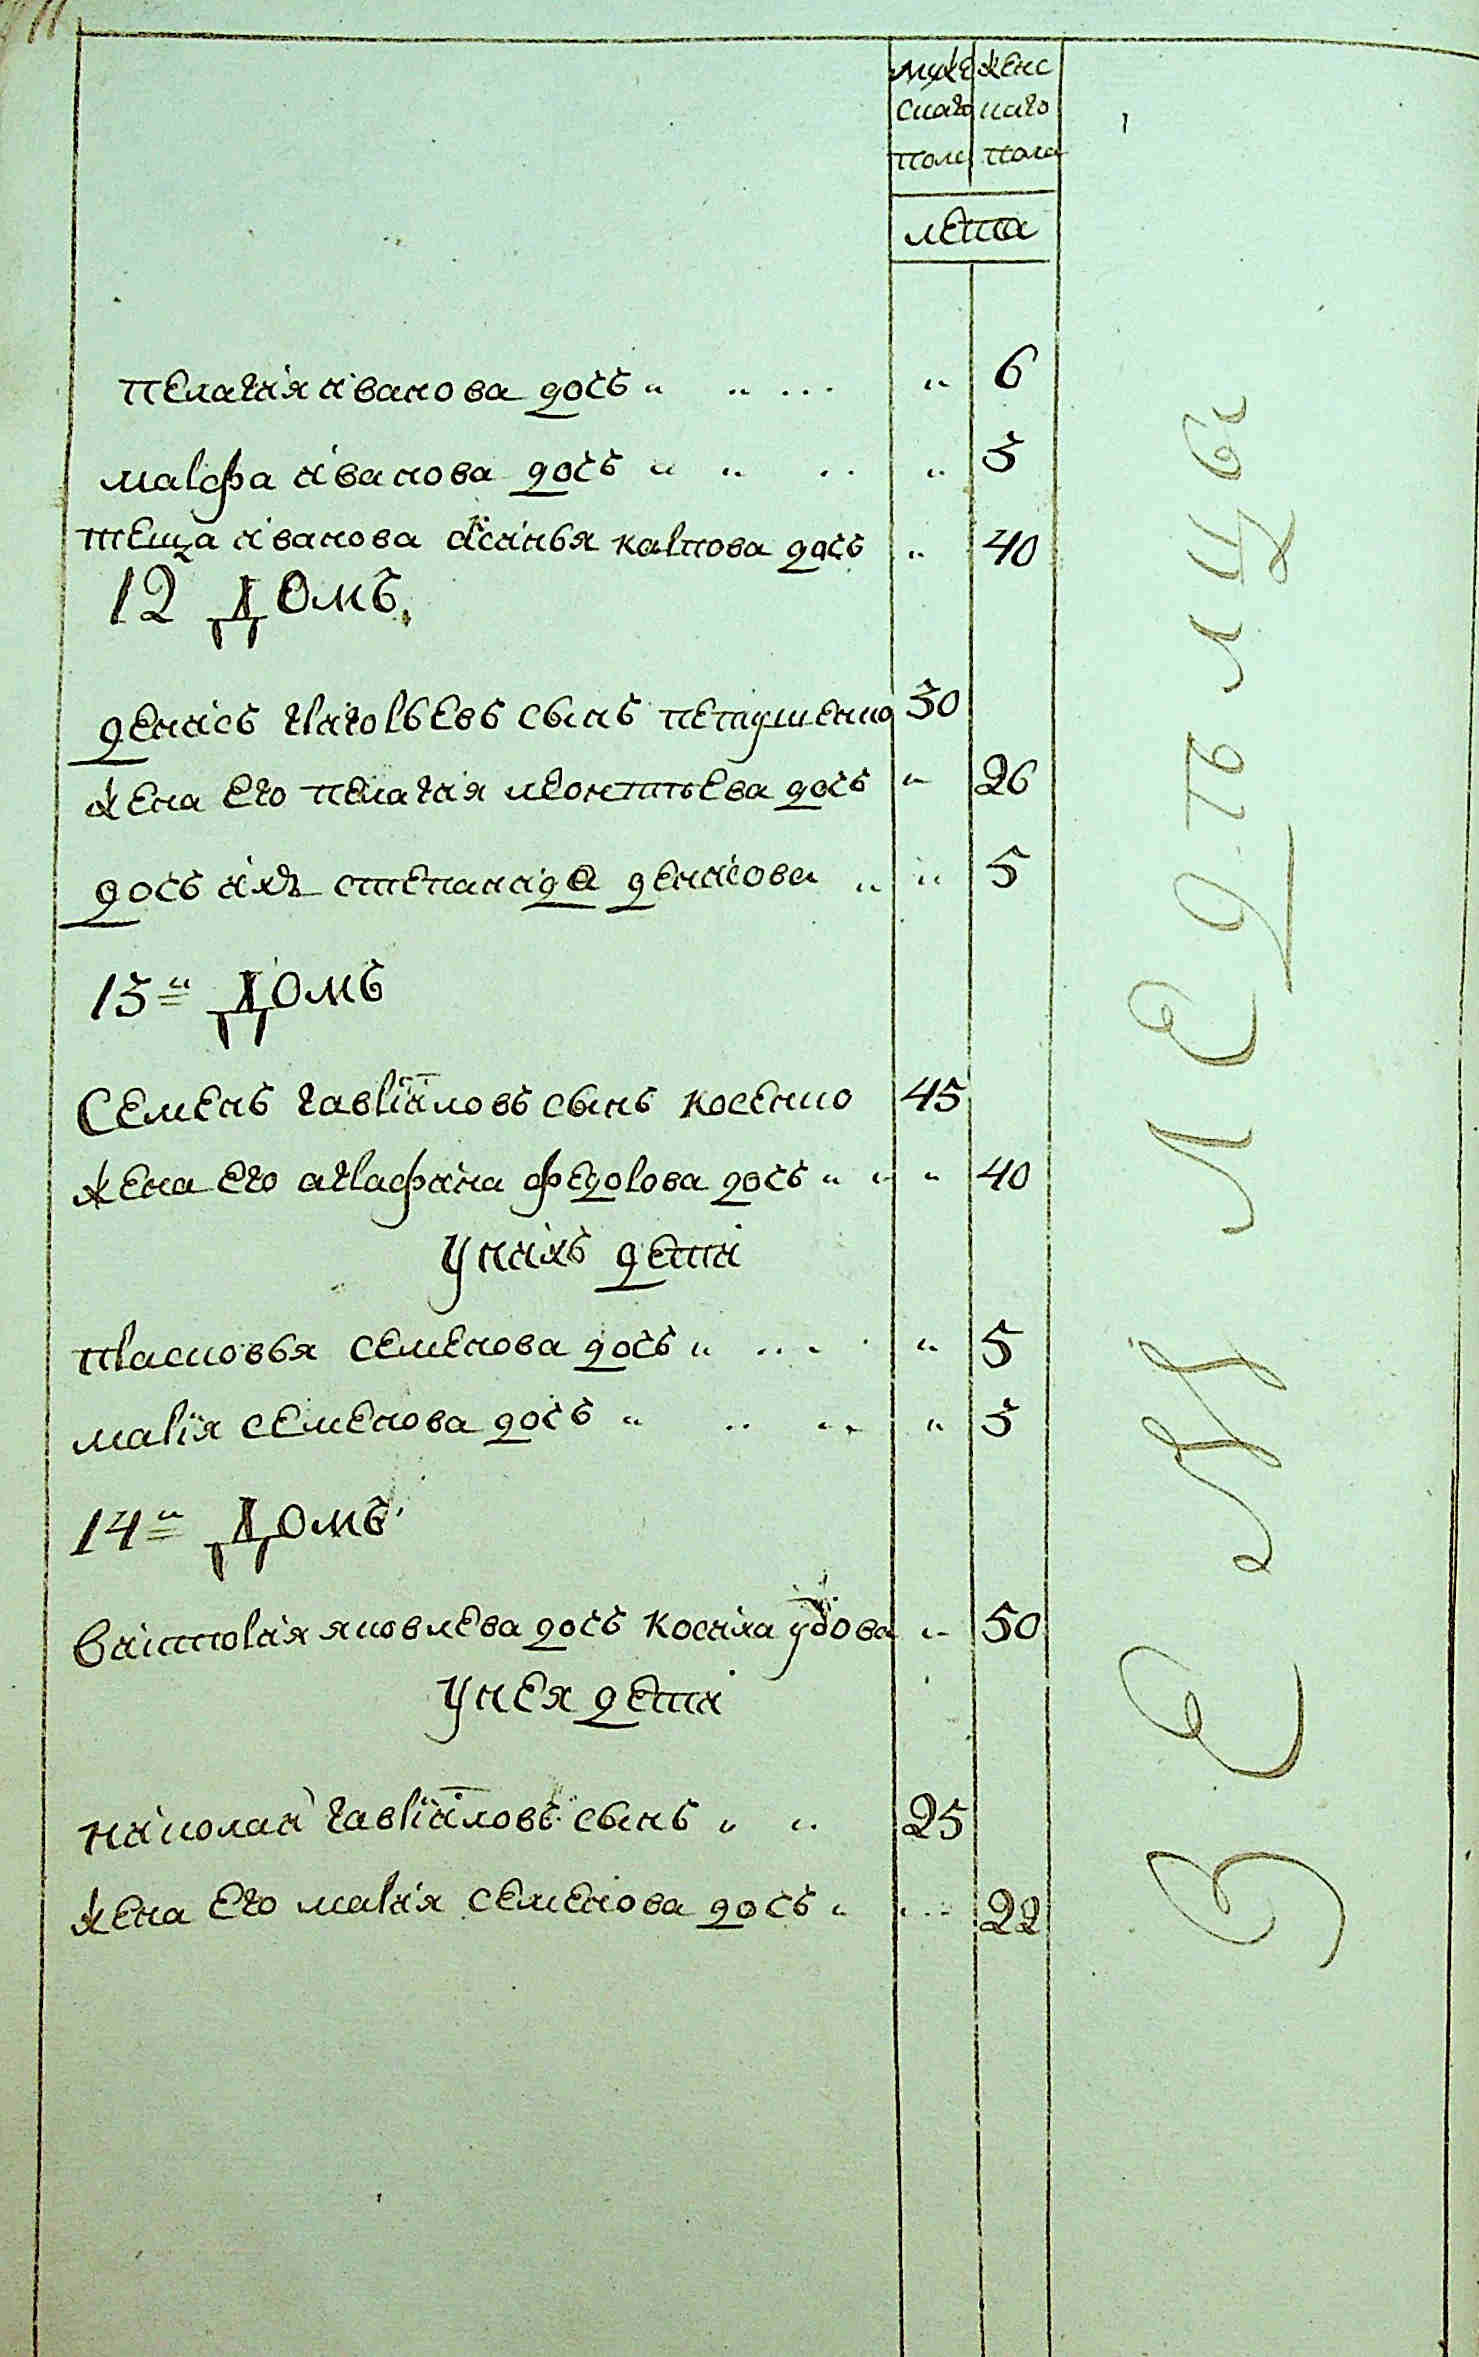 муже женс
скаго каго
пола пола
лета
пелагия иванова дочь 6
марфа иванова дочь 3
теща иванова ксинья карпова дочь 40
12 Домъ
денисъ григорьевъ сынъ петушенко 30
жена его пелагия леонтьева дочь 26
дочь ихъ степанида денисова 5
13й Домъ
Семенъ гавриловъ сынъ косенко 45
жена его аграфина федорова дочь 40
У них дети
прасковья семенова дочь 5
мария семенова дочь 3
14й Домъ
яковлева дочь косиха удова 50
У нея дети
николай гавриловъ сынъ 25
жена его мария семенова дочь 22
Земледельцы